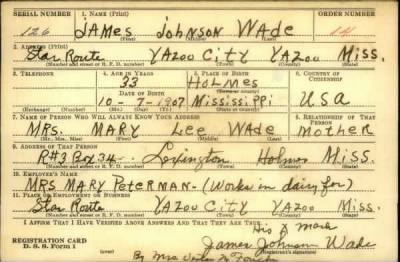 SERIAL NUMBER 1. NAME (Print) ORDER NUMBER
126 JAMES JOHNSON WADE
(First) (Middle) (Last)
2. ADDRESS (Print)
Star Route YAZOO CITY YAZOO MISS.
(Number and street or R. F. D. number) (Town) (County) (State)
3. TELEPHONE 4. AGE IN YEARS 5. PLACE OF BIRTH 6. COUNTRY OF CITIZENSHIP
33 HOLMES
DATE OF BIRTH (Town or county)
10-7-1907 MISSISSIPPI U.S.A
(Exchange) (Number) (Mo.) (Day) (Yr.) (State or country)
7. NAME OF PERSON WHO WILL ALWAYS KNOW YOUR ADDRESS 8. RELATIONSHIP OF THAT PERSON
MRS. MARY Lee WADE Mother
(Mr., Mrs., Miss) (First) (Middle) (Last)
9. ADDRESS OF THAT PERSON
R#3 Box 34- Lexington Holmes Miss.
(Number and street or R. F. D. number) (Town) (County) (State)
10. EMPLOYER'S NAME
MRS MARY PETERMAN-(Works in dairy for)
11. PLACE OF EMPLOYMENT OR BUSINESS
Star Route YAZOO CITY YAZOO Miss.
(Number and street or R. F. D. number) (Town) (County) (State)
I AFFIRM THAT I HAVE VERIFIED ABOVE ANSWERS AND THAT THEY ARE TRUE.
His X Mark
REGISTRATION CARD James Johnson Wade
D. S. S. Form 1 (Registrant's signature)
By Mrs.